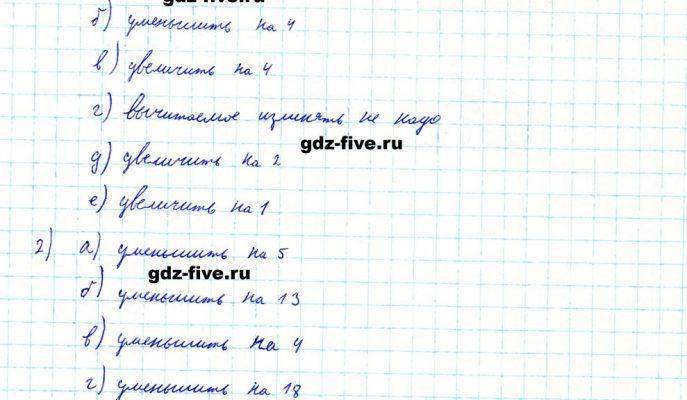 gdz-five.ru
б) уменьшить на 4
в) увеличить на 4
г) вычитаемое изменять не надо
gdz-five.ru
д) увеличить на 2
е) увеличить на 1
2) а) уменьшить на 5
gdz-five.ru
б) уменьшить на 13
в) уменьшить на 4
г) уменьшить на 18